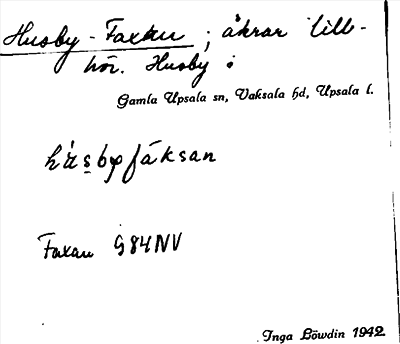 Husby-Faxan ; åkrar till-
hör. Husby i
Gamla Upsala sn, Vaksala hd, Upsala l.
hùsbyfáksan
Faxan G84NV
Inga Löwdin 1942